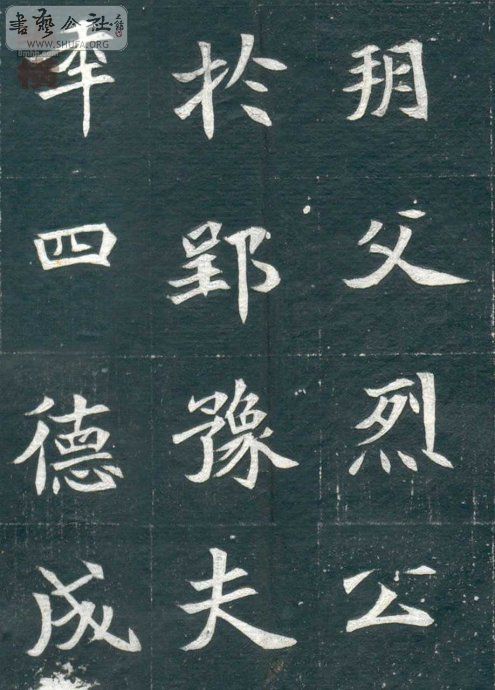 书藝公社
WWW.SHUFA.ORG
玥父烈公
於郢豫夫
奉四德成